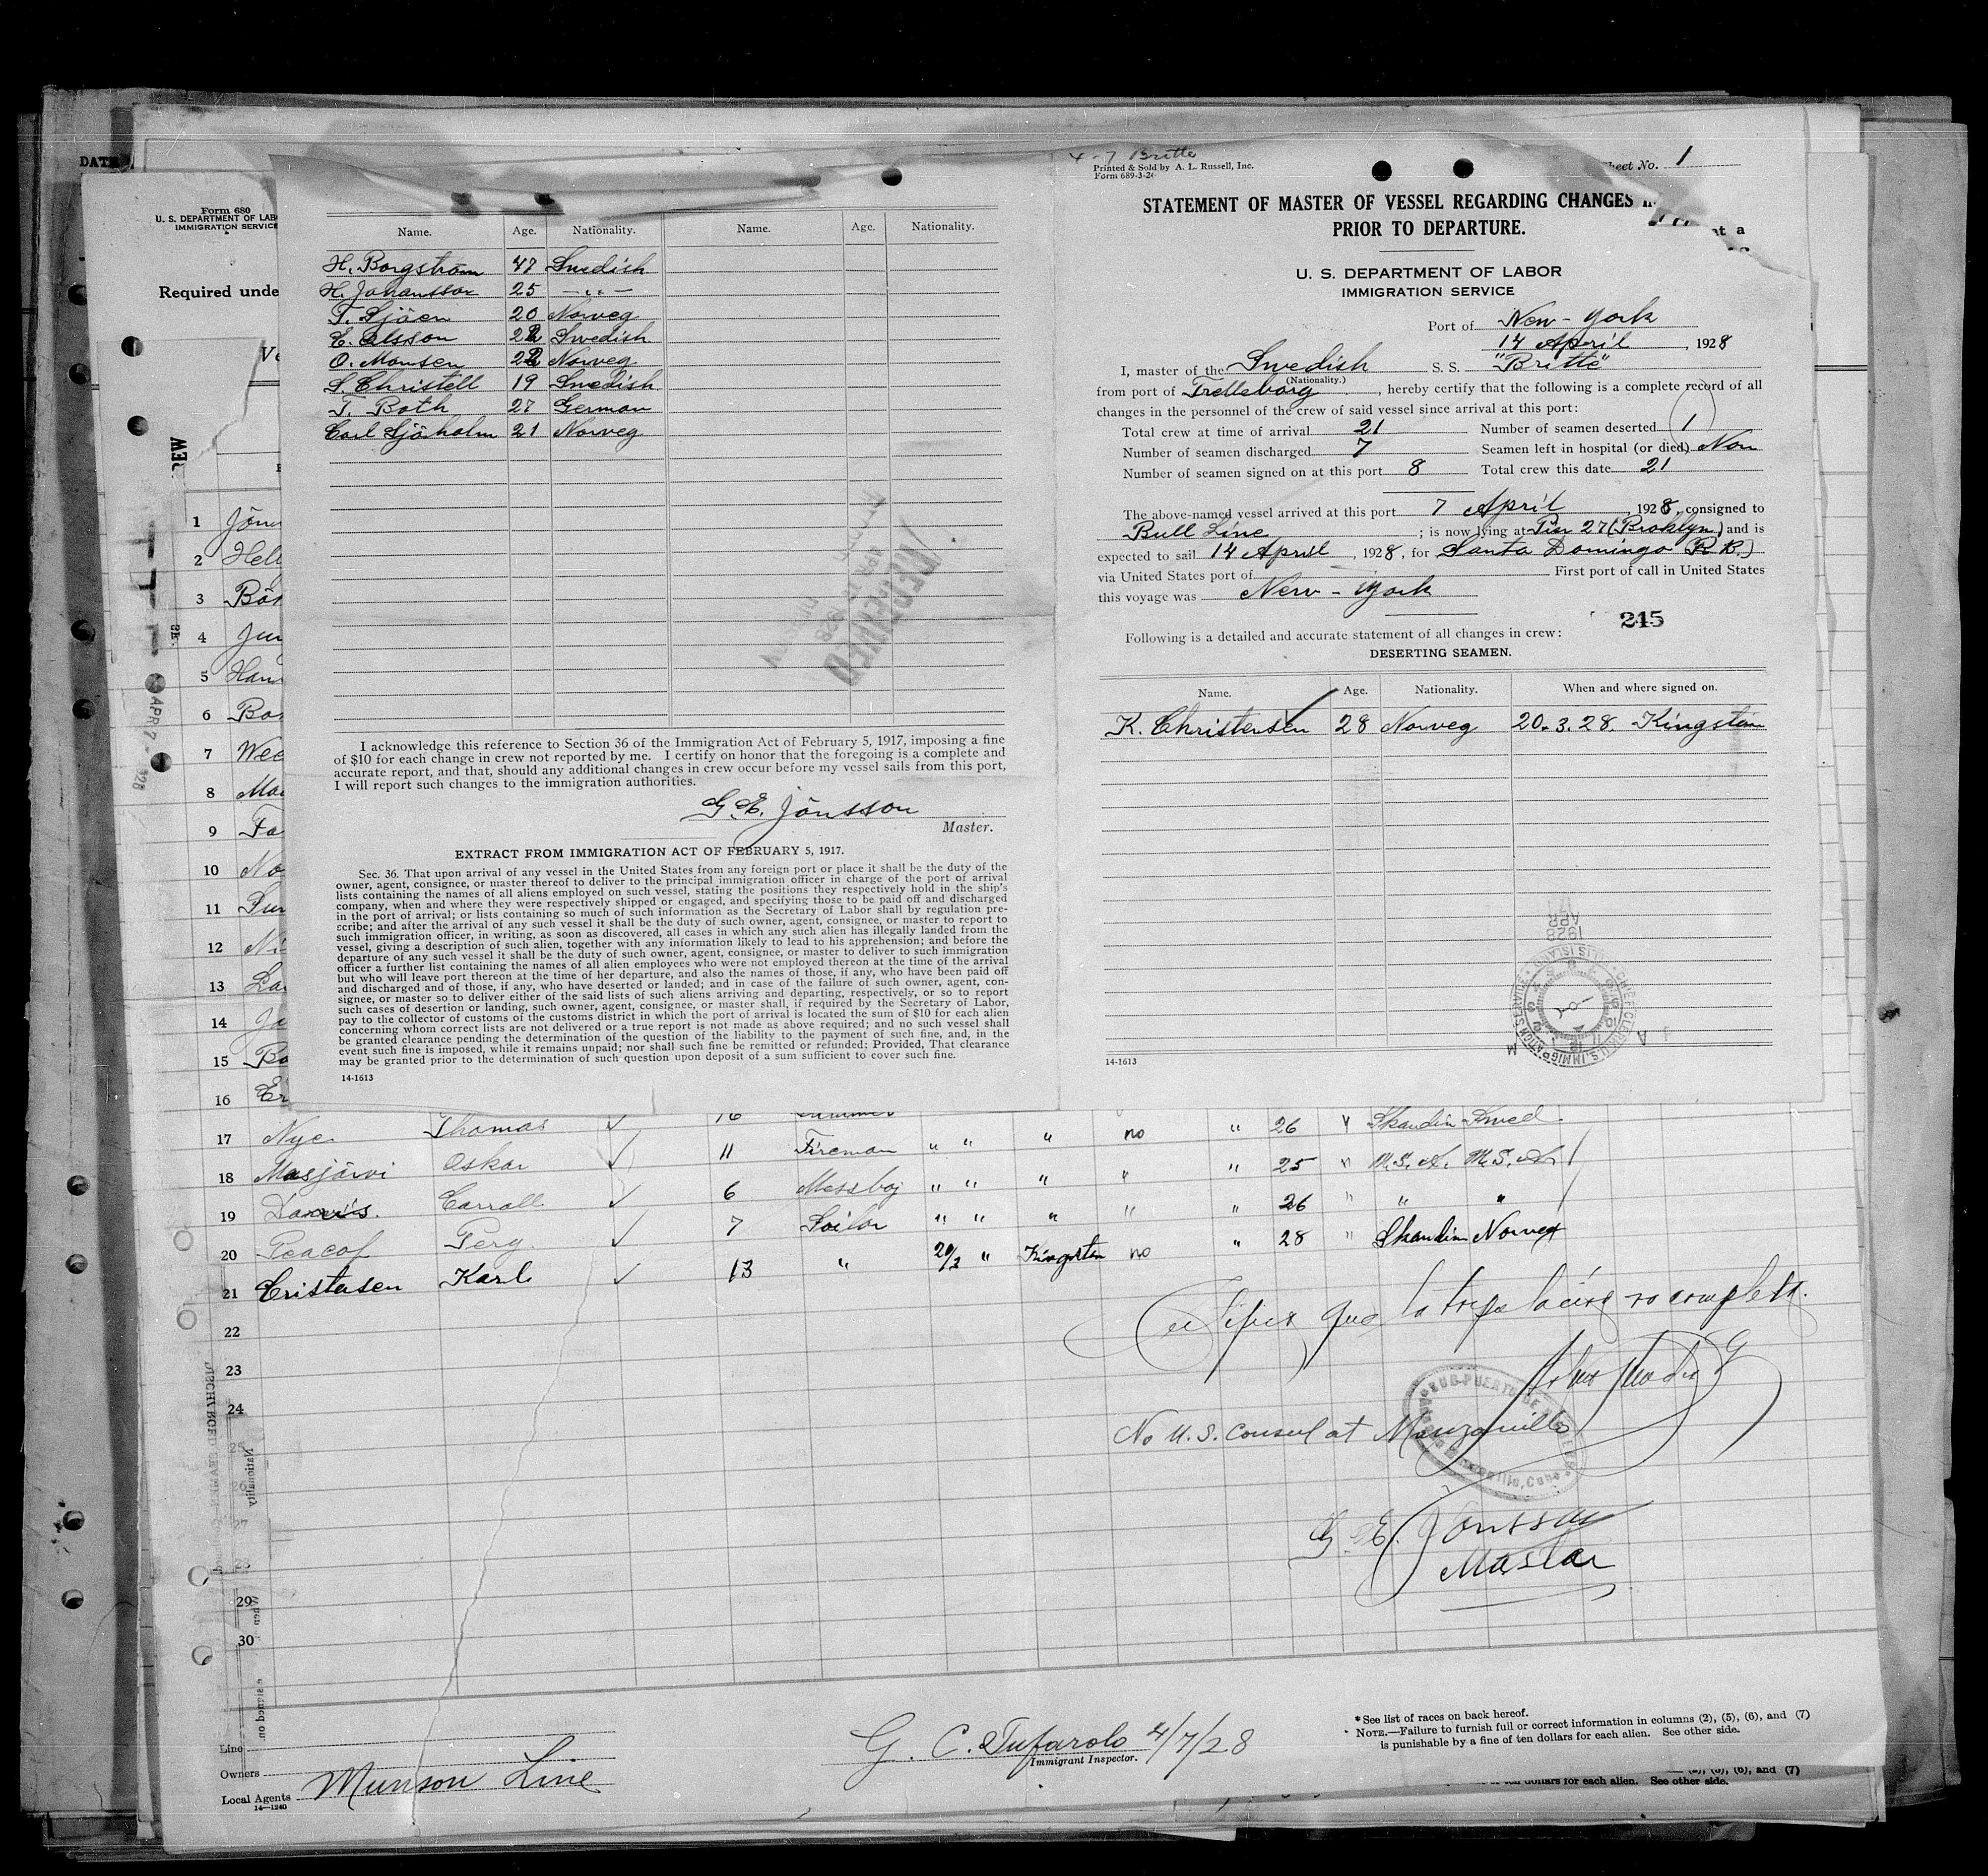 4-7 Britte
Printed & Sold by A. L. Russell, Inc.
Form 689-3-2
heet No. 1
STATEMENT OF MASTER OF VESSEL REGARDING CHANGES I
PRIOR TO DEPARTURE.
U. S. DEPARTMENT OF LABOR
IMMIGRATION SERVICE
Port of New-York
14 April, 1928
I, master of the Swedish S. S. "Britte"
(Nationality.)
from port of Trelleborg, hereby certify that the following is a complete record of all
changes in the personnel of the crew of said vessel since arrival at this port:
Total crew at time of arrival 21 Number of seamen deserted 1
Number of seamen discharged 7 Seamen left in hospital (or died) Non
Number of seamen signed on at this port 8 Total crew this date 21
The above-named vessel arrived at this port 7 April, 1928, consigned to
Bull Line; is now lying at Pier 27 (Broklyn) and is
expected to sail 14 April, 1928, for Santa Domingo (R. B.)
via United States port of First port of call in United States
this voyage was New-York
245
Following is a detailed and accurate statement of all changes in crew:
DESERTING SEAMEN.
Name. Age. Nationality. When and where signed on.
K. Christensen 28 Norveg 20.3.28. Kingston
14-1613
Name. Age. Nationality. Name. Age. Nationality.
H. Borgström 47 Swedish
H. Johansson 25 -"-
T. Sjöen 20 Norveg
E. Olsson 22 Swedish
O. Monsen 22 Norveg.
S. Christell 19 Swedish
T. Roth 27 German
Carl Sjöholm 21 Norveg
RECEIVED
I acknowledge this reference to Section 36 of the Immigration Act of February 5, 1917, imposing a fine
of $10 for each change in crew not reported by me. I certify on honor that the foregoing is a complete and
accurate report, and that, should any additional changes in crew occur before my vessel sails from this port,
I will report such changes to the immigration authorities.
G. E. Jönsson
Master.
EXTRACT FROM IMMIGRATION ACT OF FEBRUARY 5, 1917.
Sec. 36. That upon arrival of any vessel in the United States from any foreign port or place it shall be the duty of the
owner, agent, consignee, or master thereof to deliver to the principal immigration officer in charge of the port of arrival
lists containing the names of all aliens employed on such vessel, stating the positions they respectively hold in the ship's
company, when and where they were respectively shipped or engaged, and specifying those to be paid off and discharged
in the port of arrival; or lists containing so much of such information as the Secretary of Labor shall by regulation pre-
scribe; and after the arrival of any such vessel it shall be the duty of such owner, agent, consignee, or master to report to
such immigration officer, in writing, as soon as discovered, all cases in which any such alien has illegally landed from the
vessel, giving a description of such alien, together with any information likely to lead to his apprehension; and before the
departure of any such vessel it shall be the duty of such owner, agent, consignee, or master to deliver to such immigration
officer a further list containing the names of all alien employees who were not employed thereon at the time of the arrival
but who will leave port thereon at the time of her departure, and also the names of those, if any, who have been paid off
and discharged and of those, if any, who have deserted or landed; and in case of the failure of such owner, agent, con-
signee, or master so to deliver either of the said lists of such aliens arriving and departing, respectively, or so to report
such cases of desertion or landing, such owner, agent, consignee, or master shall, if required by the Secretary of Labor,
pay to the collector of customs of the customs district in which the port of arrival is located the sum of $10 for each alien
concerning whom correct lists are not delivered or a true report is not made as above required; and no such vessel shall
be granted clearance pending the determination of the question of the liability to the payment of such fine, and, in the
event such fine is imposed, while it remains unpaid; nor shall such fine be remitted or refunded: Provided, That clearance
may be granted prior to the determination of such question upon deposit of a sum sufficient to cover such fine.
14-1613
DATE
Form 680
U. S. DEPARTMENT OF LAB
IMMIGRATION SERVICE
Required unde
Ve
REW
APR 7 - 1928
1 Jöns
2 Hell
3 Bör
4 Jun
5 Han
6 Bor
7 Wee
8 Mar
9 Fa
10 No
11 Sun
12 Ni
13 Lar
14 Ja
15 Bo
16 Er
17 Nye Thomas 16 " 26 " Skandin Swed.
18 Masjärvi Oskar 11 Fireman " " " no " 25 " U.S.A. U.S.A.
19 Darvis. Carroll 6 Messboj " " " " " 26 " " "
20 Peacof Perg. 7 Sailor " " " " " 28 " Skandin Norveg
21 Cristensen Karl 13 " 20/3 " Kingston no
22
23
24
25
26
27
28
29
30
Certifico que la tripulacion es completa.
No U. S. Consul at Manzanillo
G. E. Jönsson
Master
Line
Owners
Local Agents Munson Line
14-1240
G. C. Tufarolo 4/7/28
Immigrant Inspector.
*See list of races on back hereof.
NOTE.—Failure to furnish full or correct information in columns (2), (5), (6), and (7)
is punishable by a fine of ten dollars for each alien. See other side.
(6), and (7)
ten dollars for each alien. See other side.